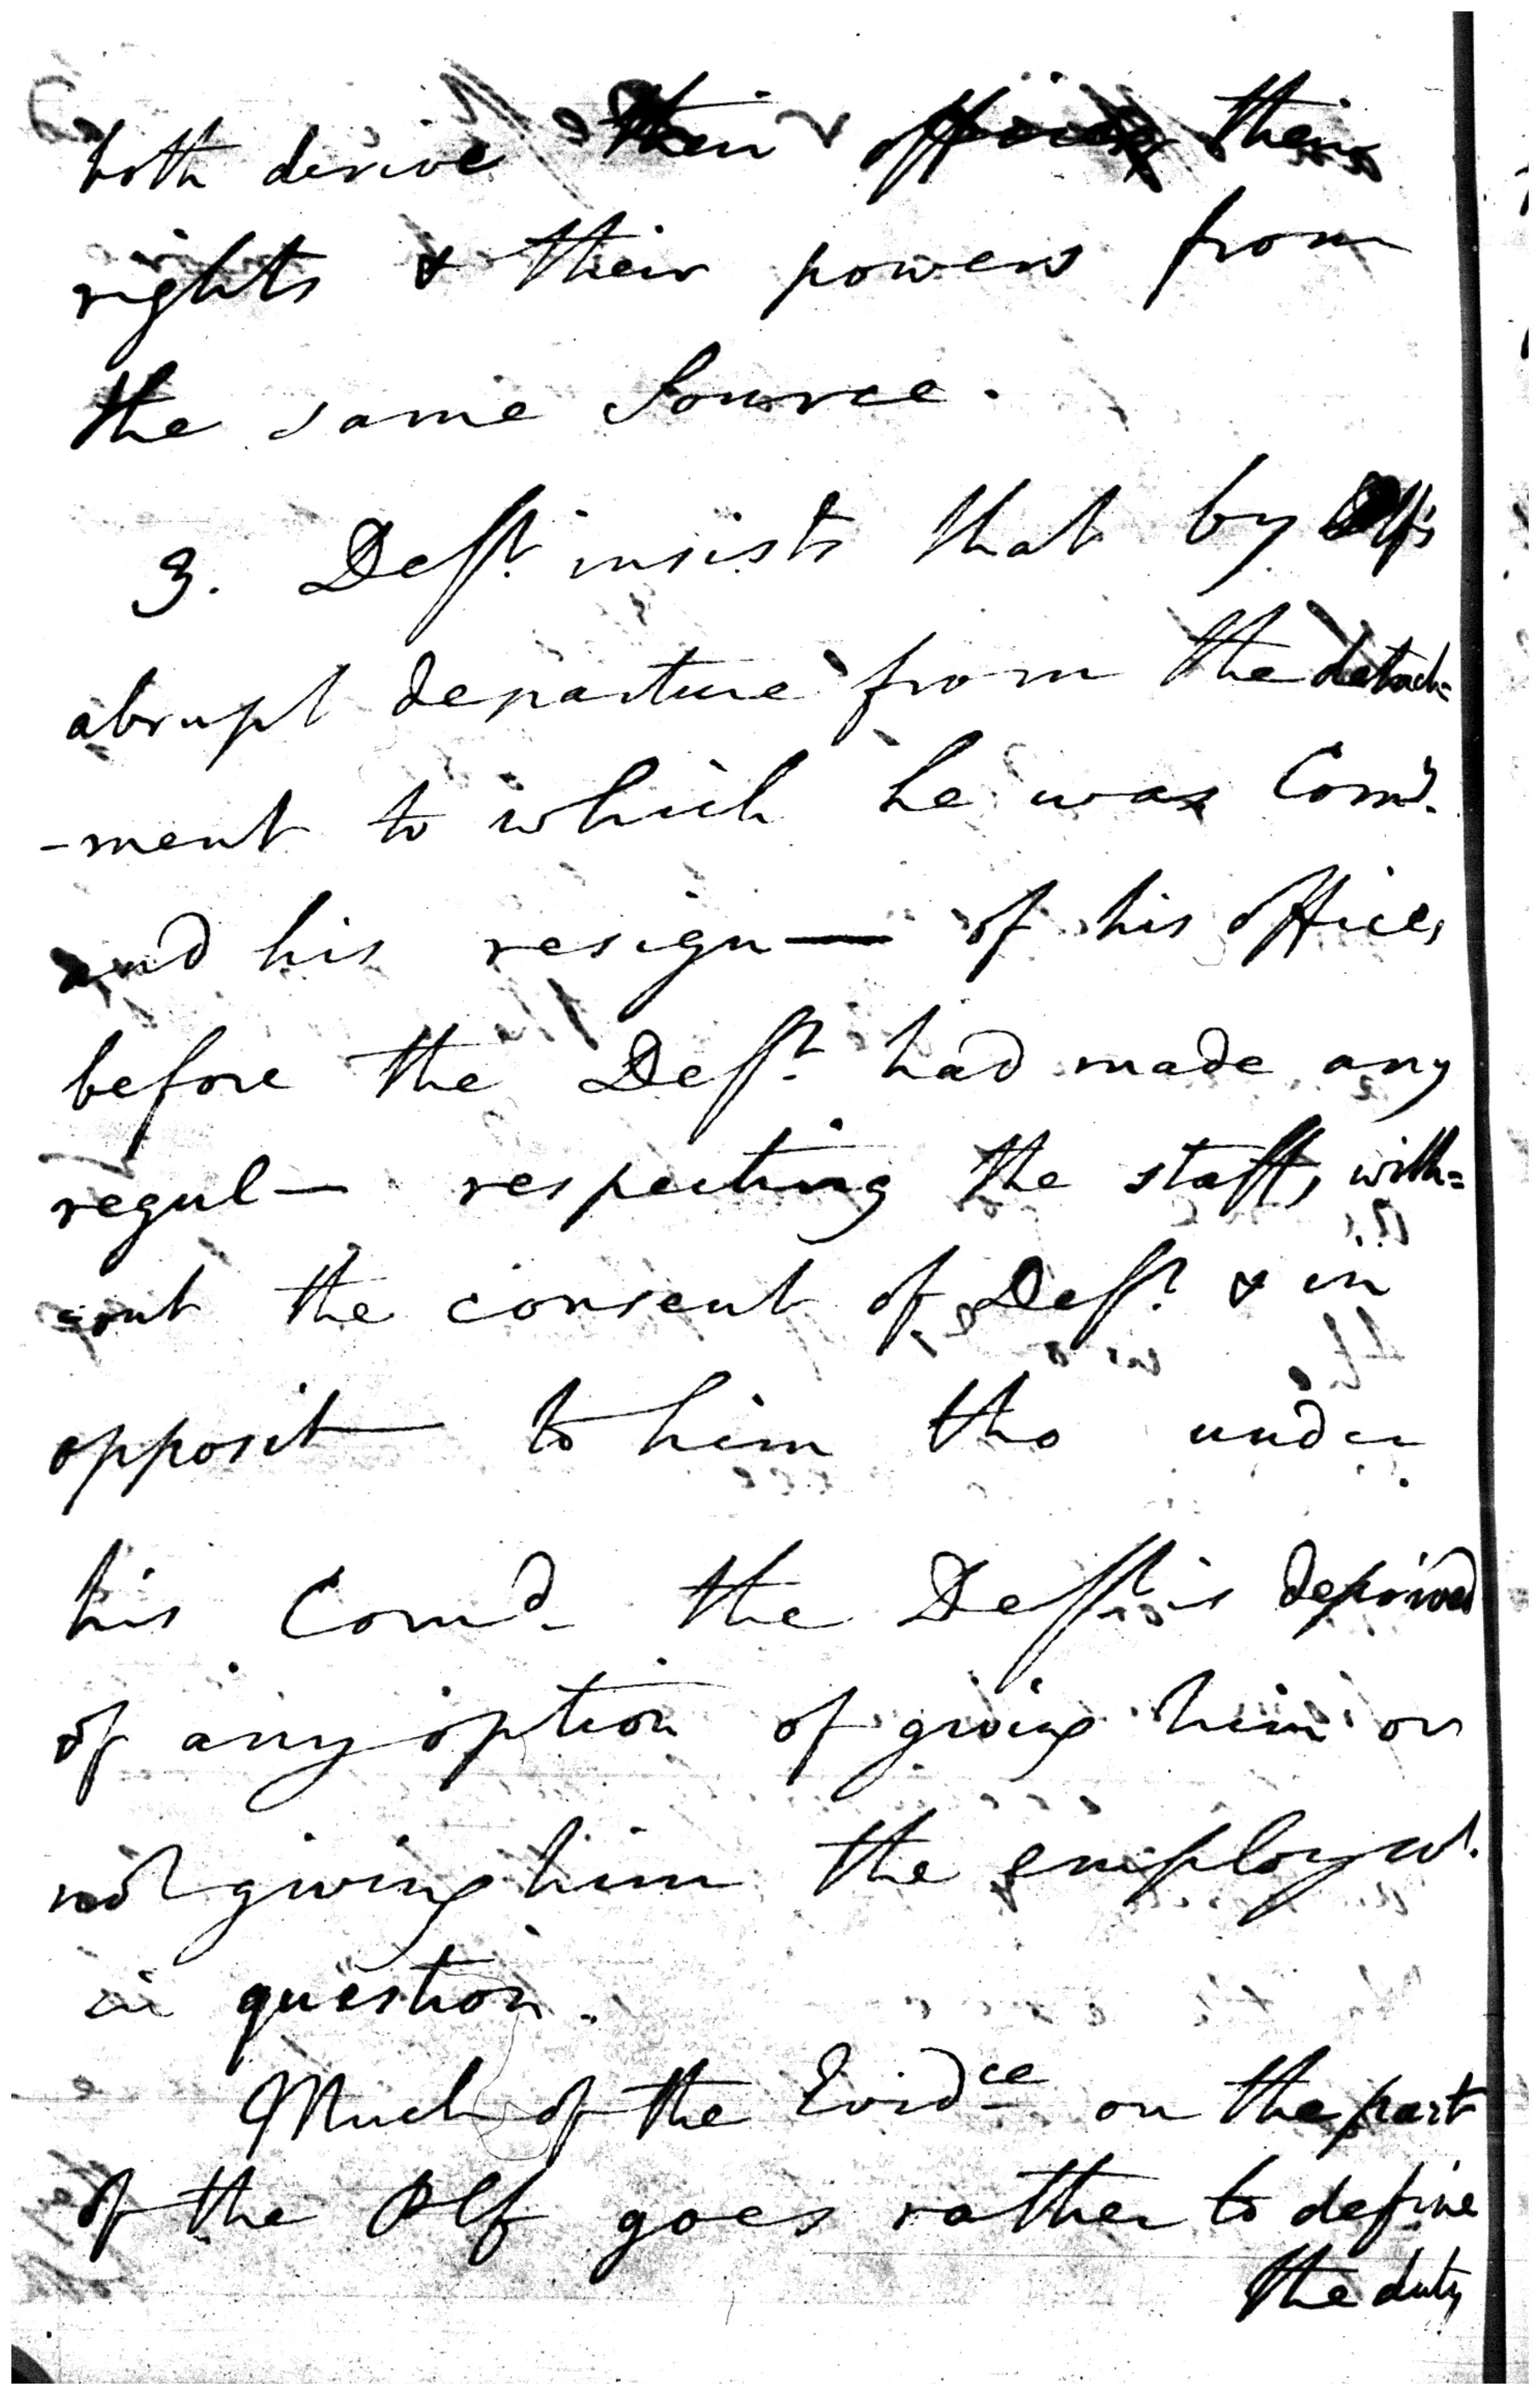 both derive their their
rights & their powers from
the same Source.
3. Deft. insists that by Plf's
abrupt departure from the detach=
-ment to which he was Com'd.
and his resign— of his office,
before the Deft. had made any
regul— respecting the staff, with=
=out the consent of Deft. & in
opposit— to him tho under
his Com'd. the Deft. is deprived
of any option of giving him or
not giving him the employm't.
in question.
Much of the Evid^ce on the part
of the Plf goes rather to define
the duty